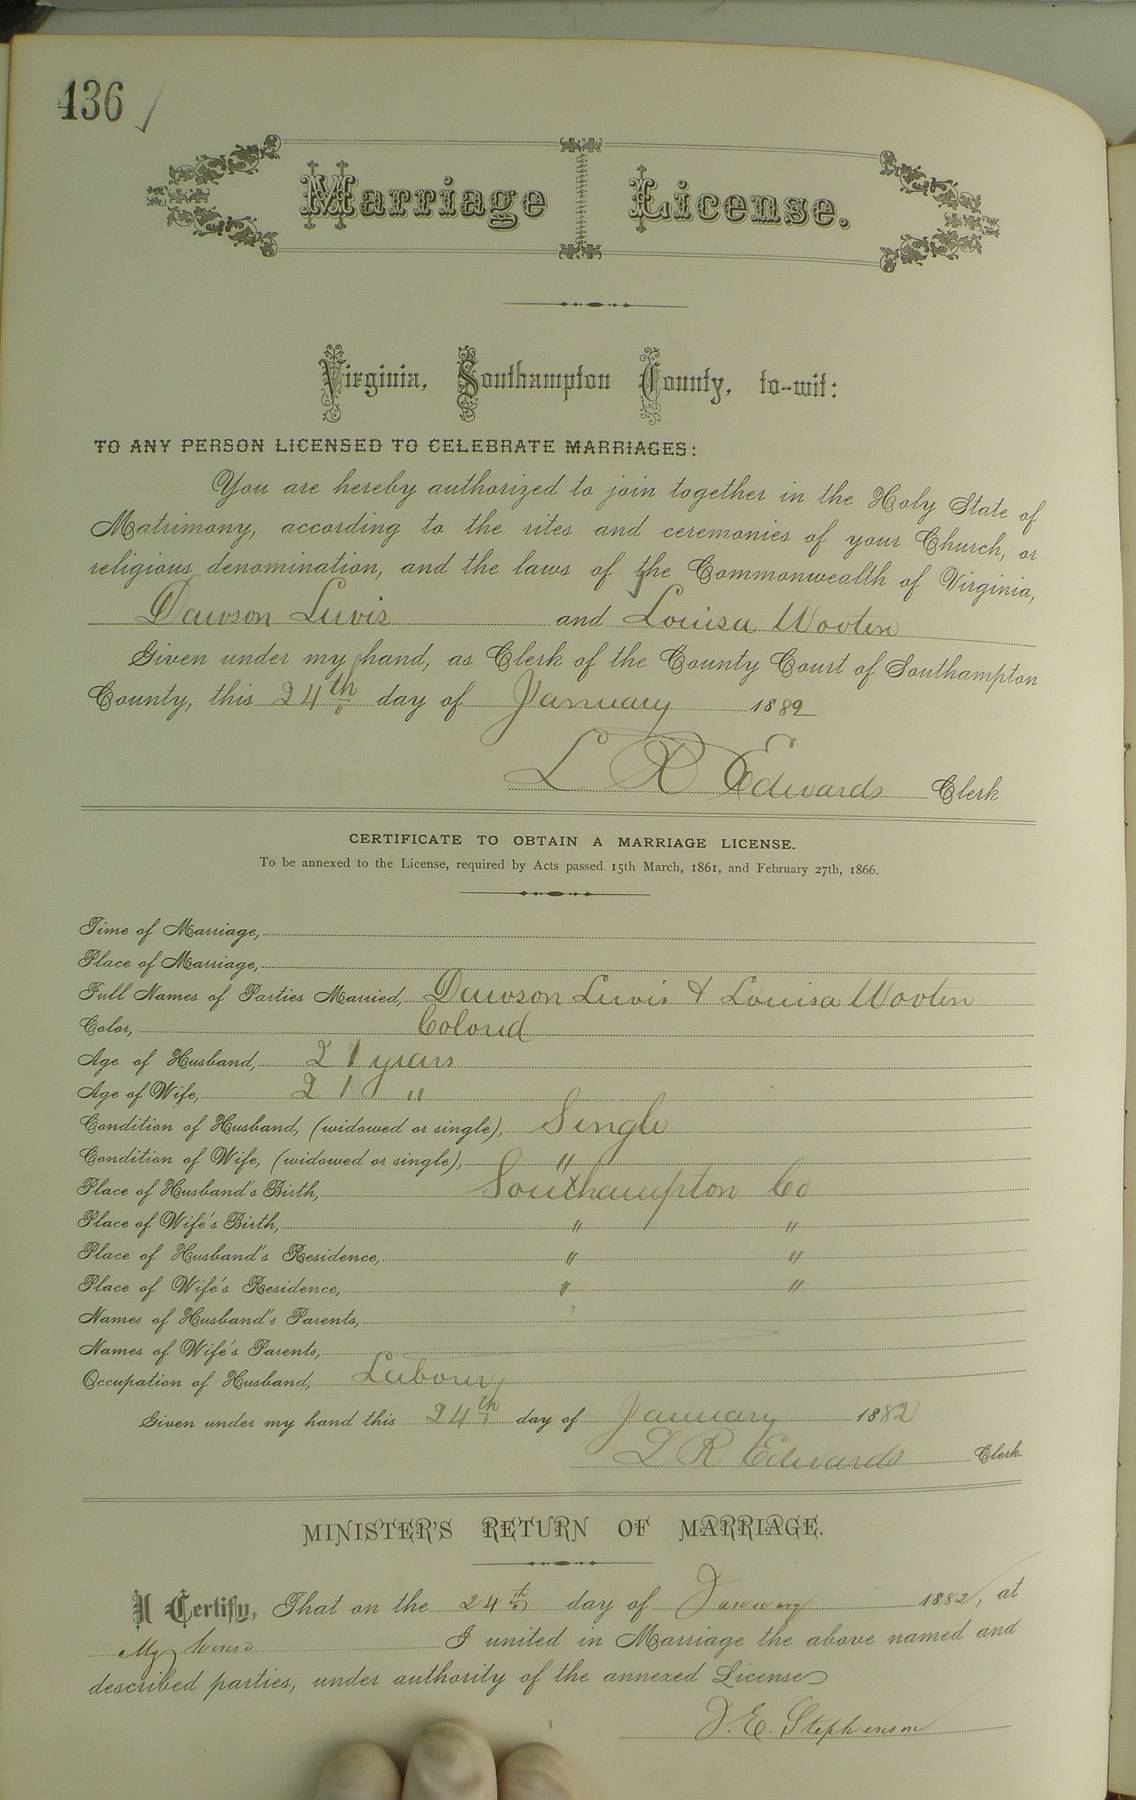 436
Marriage License.
Virginia, Southampton County, to-wit:
TO ANY PERSON LICENSED TO CELEBRATE MARRIAGES:
You are hereby authorized to join together in the Holy State of
Matrimony, according to the rites and ceremonies of your Church, or
religious denomination, and the laws of the Commonwealth of Virginia,
Dawson Luvis and Louisa Wooten
Given under my hand, as Clerk of the County Court of Southampton
County, this 24th day of January 1882
L R Edwards Clerk
CERTIFICATE TO OBTAIN A MARRIAGE LICENSE.
To be annexed to the License, required by Acts passed 15th March, 1861, and February 27th, 1866.
Time of Marriage,
Place of Marriage,
Full Names of Parties Married, Dawson Luvis & Louisa Wooten
Color, Colord
Age of Husband, 21 years
Age of Wife, 21 "
Condition of Husband, (widowed or single), Single
Condition of Wife, (widowed or single), "
Place of Husband's Birth, Southampton Co
Place of Wife's Birth, " "
Place of Husband's Residence, " "
Place of Wife's Residence, " "
Names of Husband's Parents,
Names of Wife's Parents,
Occupation of Husband, Labour
Given under my hand this 24th day of January 1882
L R Edwards Clerk.
MINISTER'S RETURN OF MARRIAGE.
I Certify, That on the 24th day of January 1882, at
My house I united in Marriage the above named and
described parties, under authority of the annexed License
J. E. Stephenson